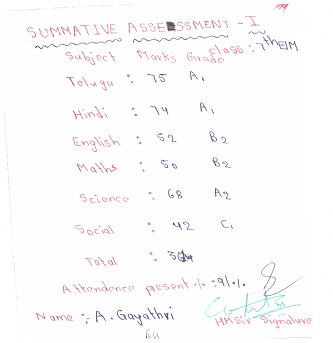 SUMMATIVE ASSESSMENT - I
Class : 7th EM
Subject Marks Grade
Telugu : 75 A1
Hindi : 74 A1
English : 52 B2
Maths : 50 B2
Science : 68 A2
Social : 42 C1
Total :
Attendence present % : 91%
Name : A. Gayathri
HM Sir Signature